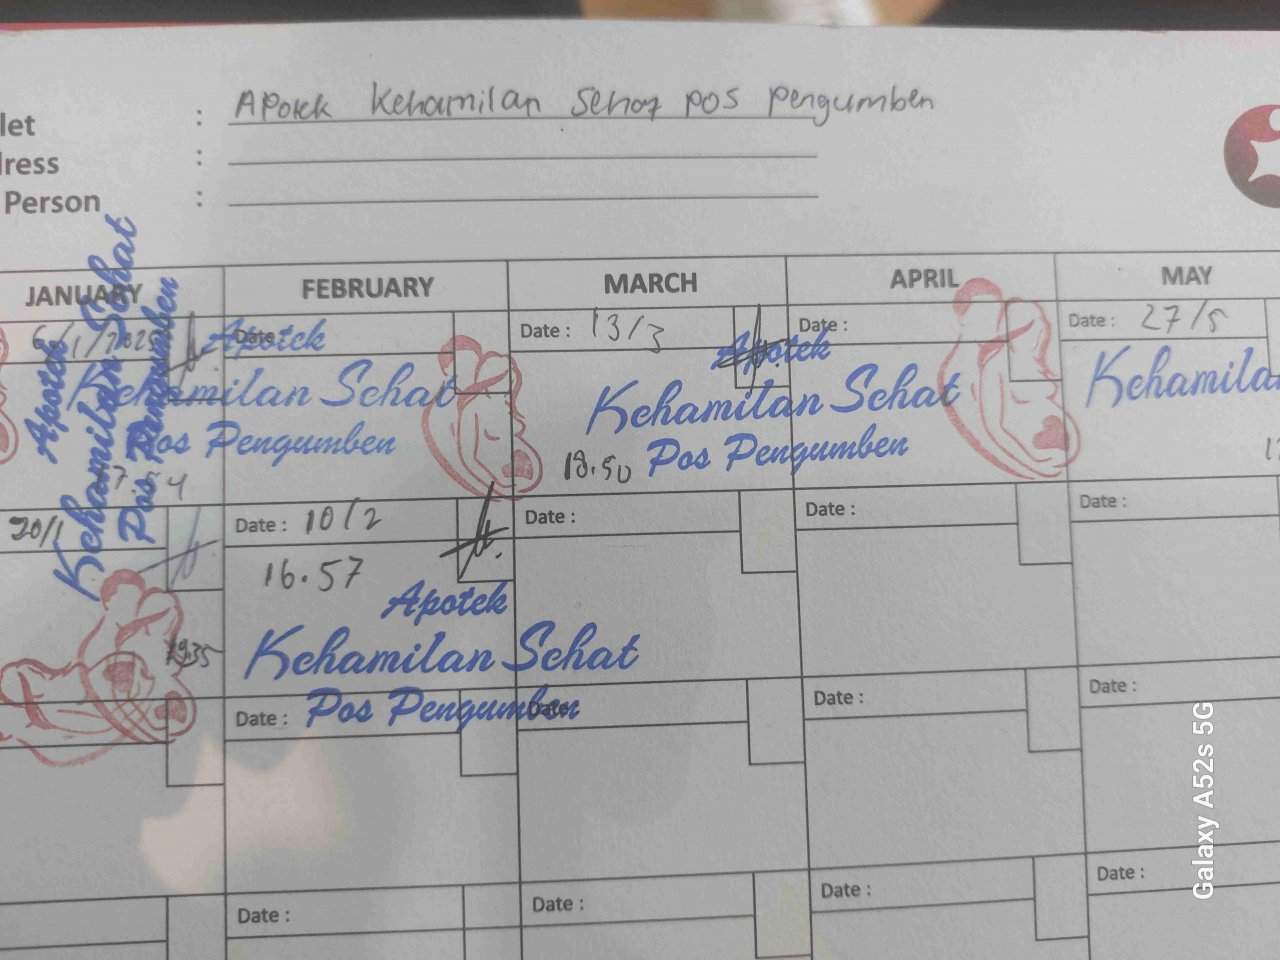 let : Apotek Kehamilan Sehat pos pengumben
dress :
Person :
JANUARY FEBRUARY MARCH APRIL MAY
6/1/2025 Date : Date : 13/3 Date : Date : 27/5
Apotek
Kehamilan Sehat
Pos Pengumben
Apotek
Kehamilan Sehat
Pos Pengumben
Apotek
Kehamilan Sehat
Pos Pengumben
18.50
Kehamila
20/1 Date : 10/2 Date : Date : Date :
16.57
19.35
Apotek
Kehamilan Sehat
Pos Pengumben
Date : Date : Date : Date :
Date : Date : Date : Date :
Galaxy A52s 5G